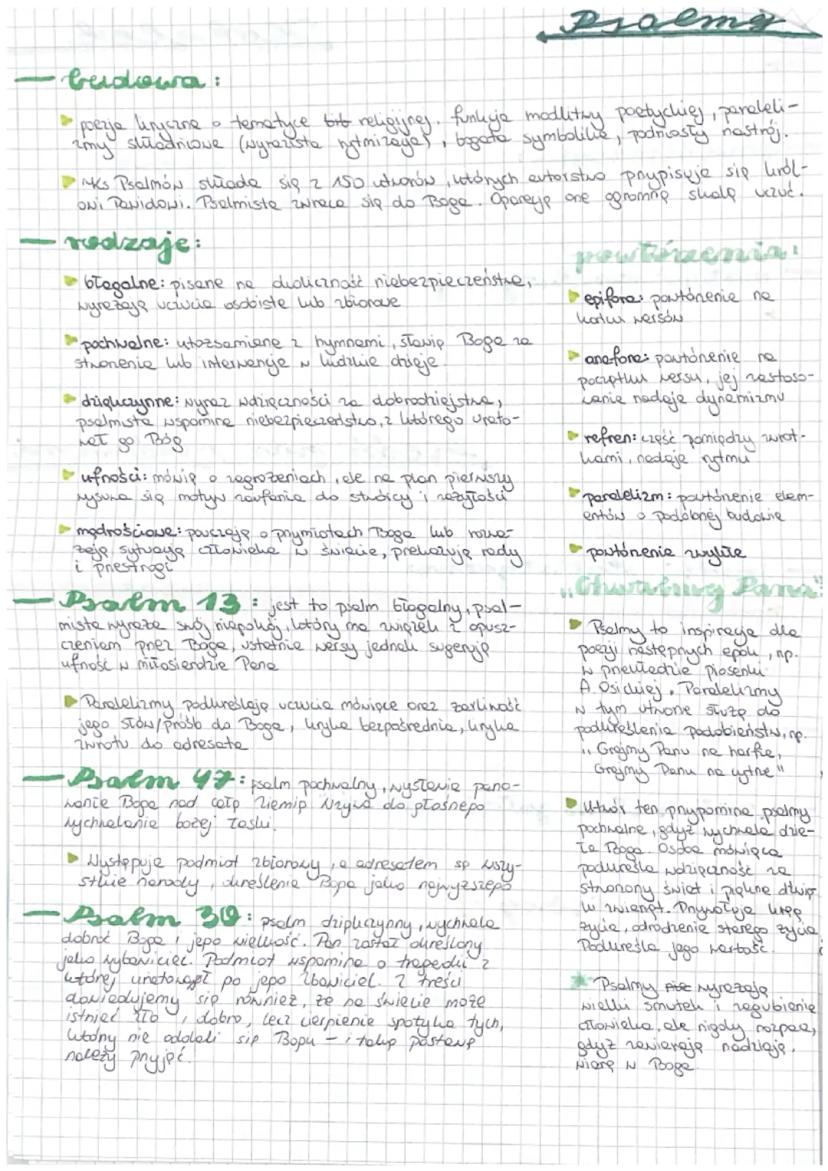 Psalmy
— budowa:
poezja liryczna o tematyce religijnej. funkcja modlitwy poetyckiej, paraleli-
zmy składniowe (wyrazista rytmizacja), bogata symbolika, podniosły nastrój.
Ks Psalmów składa się z 150 utworów, których autorstwo przypisuje się król-
owi Dawidowi. Psalmista zwraca się do Boga. Operują one ogromną skalą uczuć.
— rodzaje:
błagalne: pisane na okoliczność niebezpieczeństwa,
wyrażają uczucia osobiste lub zbiorowe
pochwalne: utożsamiane z hymnami, sławią Boga za
stworzenie lub interwencje w ludzkie dzieje
dziękczynne: wyraz wdzięczności za dobrodziejstwa,
psalmista wspomina niebezpieczeństwo, z którego urato-
wał go Bóg
ufności: mówią o zagrożeniach, ale na plan pierwszy
wysuwa się motyw zaufania do stwórcy i zażyłości
mądrościowe: pouczają o przymiotach Boga lub rozwa-
żają sytuację człowieka w świecie, przekazują rady
i przestrogi
— Psalm 13: jest to psalm błagalny, psal-
mista wyraża swój niepokój, który ma związek z opusz-
czeniem przez Boga, ostatnie wersy jednak sugerują
ufność w miłosierdzie Pana
Paralelizmy podkreślają uczucia mówiące oraz żarliwość
jego słów/próśb do Boga, liryka bezpośrednia, liryka
zwrotu do adresata
— Psalm 47: psalm pochwalny, wysławia pano-
wanie Boga nad całą ziemią Wzywa do głośnego
wychwalania bożej łaski.
Występuje podmiot zbiorowy, a adresatem są wszy-
stkie narody, określenie Boga jako najwyższego
— Psalm 30: psalm dziękczynny, wychwala
dobroć Boga i jego wielkość. Pan został określony
jako wybawiciel. Podmiot wspomina o tragedii z
której uratował go jego zbawiciel. Z treści
dowiadujemy się również, że na świecie może
istnieć zło i dobro, lecz cierpienie spotyka tych,
którzy nie oddali się Bogu – i taką postawę
należy przyjąć.
powtórzenia:
epifora: powtórzenie na
końcu wersów
anafora: powtórzenie na
początku wersu, jej zastoso-
wanie nadaje dynamizmu
refren: część pomiędzy zwrot-
kami, nadaje rytmu
paralelizm: powtórzenie elem-
entów o podobnej budowie
powtórzenie zwykłe
"Chwalmy Pana"
Psalmy to inspiracja dla
poezji następnych epok, np.
w przekładzie piosenki
A. Osickiej. Paralelizmy
w tym utworze służą do
podkreślenia podobieństw, np.
"Grajmy Panu na harfie,
Grajmy Panu na cytrze"
Utwór ten przypomina psalmy
pochwalne, gdyż wychwala dzie-
ła Boga. Osoba mówiąca
podkreśla wdzięczność za
stworzony świat i piękne dźwię
ki zwierząt. Przywołuje kręg
życia, odrodzenie starego życia
Podkreśla jego wartość.
Psalmy wyrażają
wielki smutek i zagubienie
człowieka, ale nigdy rozpacz,
gdyż zawierają nadzieję,
wiarę w Boga